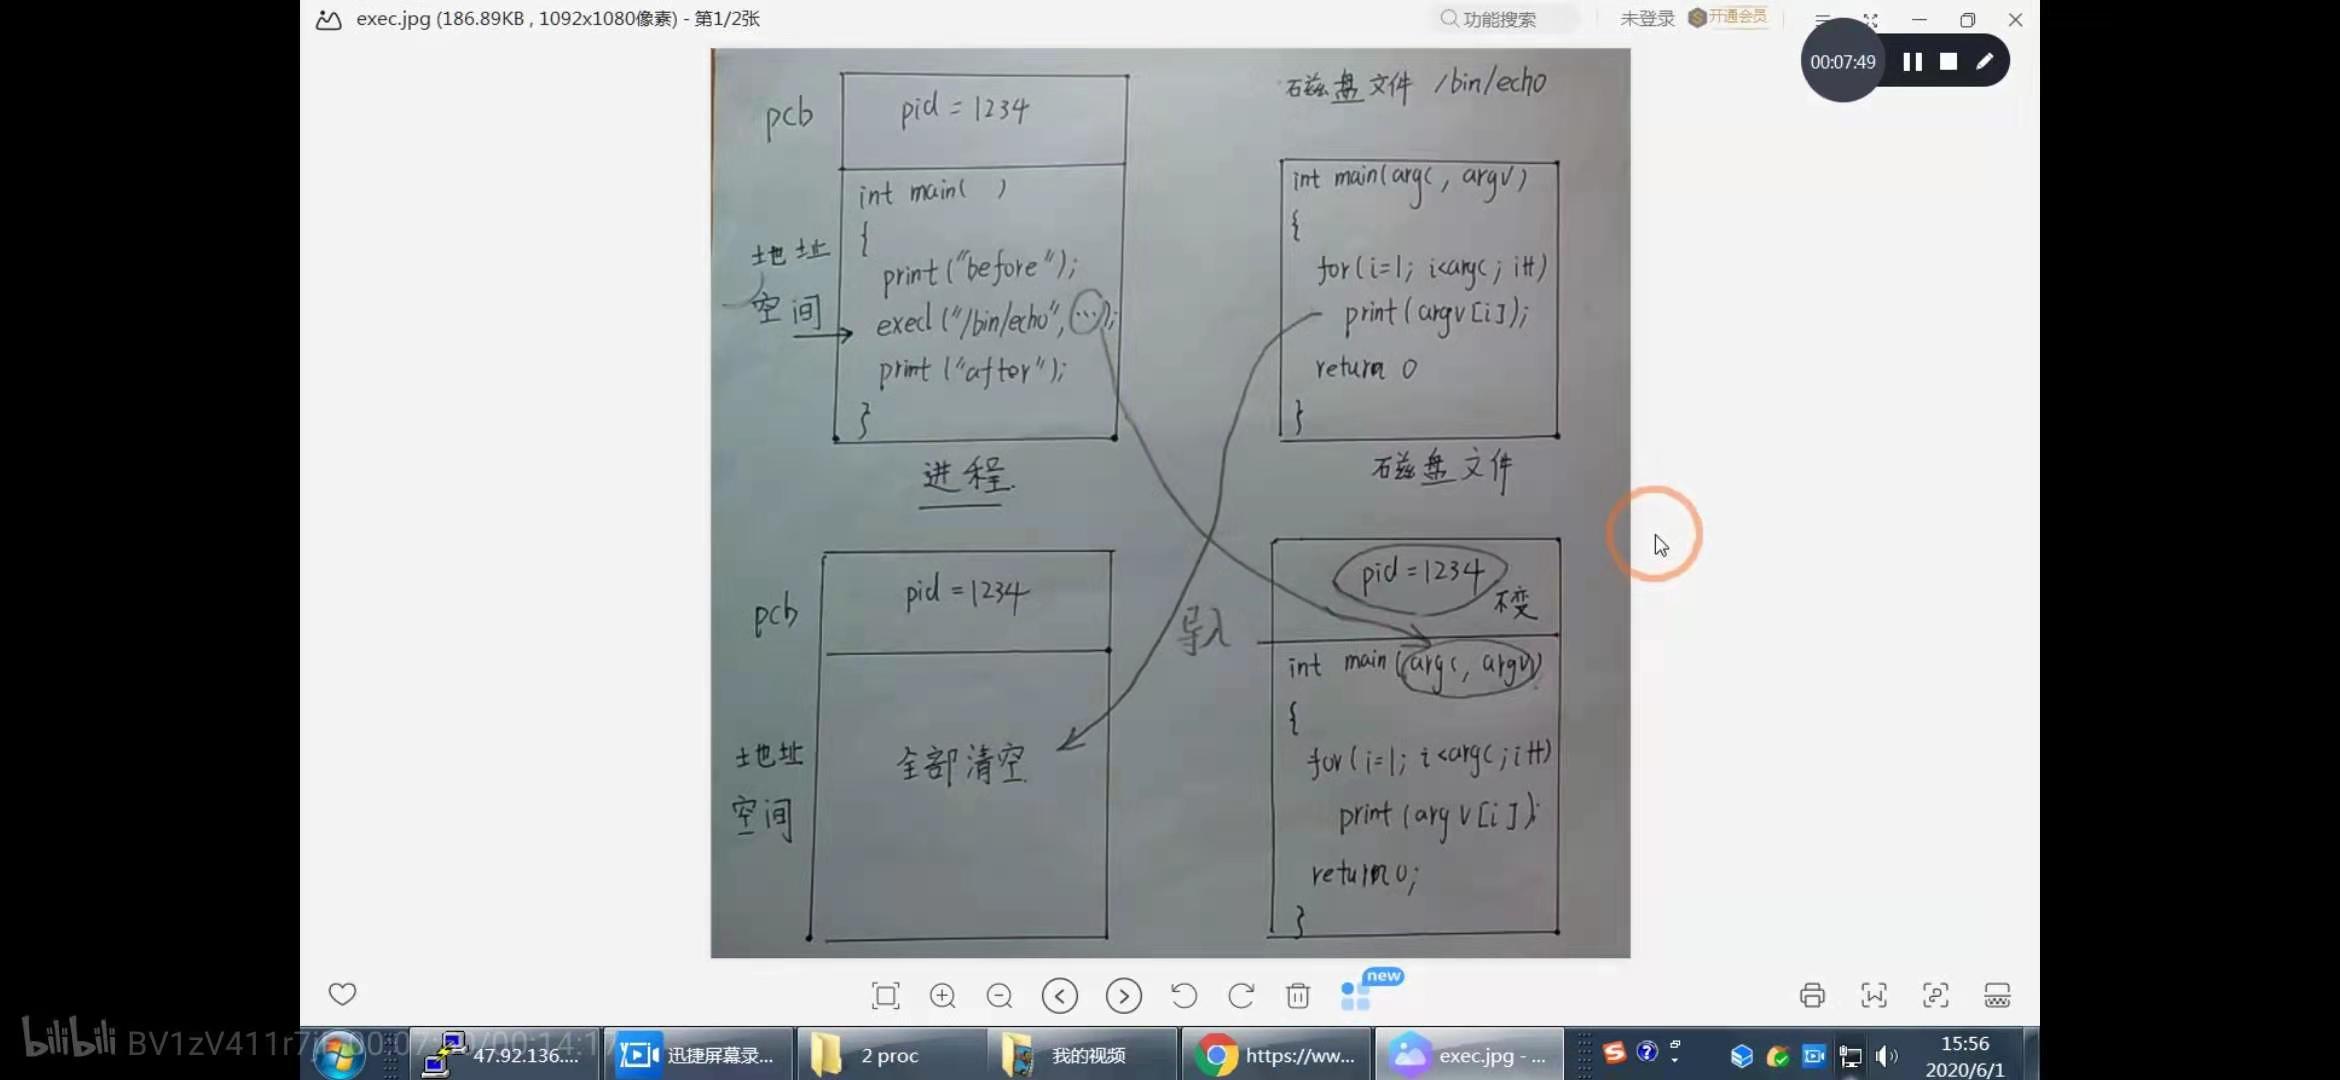 exec.jpg (186.89KB , 1092x1080像素) - 第1/2张
功能搜索
未登录
开通会员
00:07:49
pcb
pid = 1234
地址
空间
int main( )
{
print ("before");
execl ("/bin/echo", ...);
print ("after");
}
进程
磁盘文件 /bin/echo
int main(argc, argv)
{
for(i=1; i<argc; i++)
print(argv[i]);
return 0
}
磁盘文件
pcb
pid = 1234
地址
空间
全部清空
导入
pid = 1234
不变
int main (argc, argv)
{
for(i=1; i<argc; i++)
print(argv[i]);
return 0;
}
new
bilibili BV1zV411r7j
47.92.136....
迅捷屏幕录...
2 proc
我的视频
https://ww...
exec.jpg - ...
15:56
2020/6/1